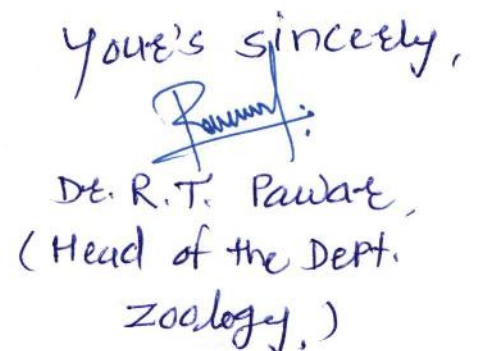 Your's sincerely,
Dr. R.T. Pawar,
(Head of the Dept.
Zoology.)